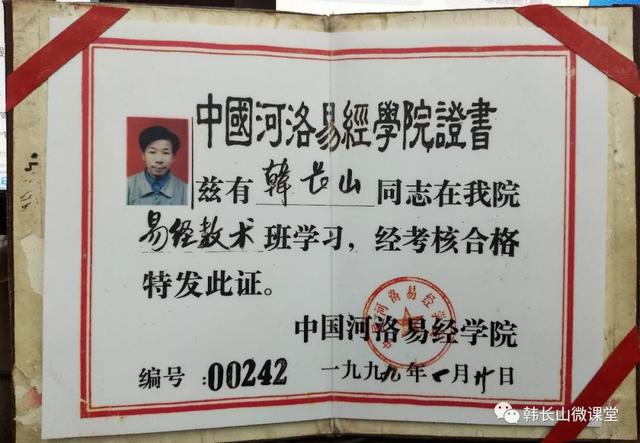 中國河洛易經學院證書
兹有韓長山同志在我院
易经数术班学习，经考核合格
特发此证。
中国河洛易经学院
中国河洛易经学院
编号:00242
一九九九年 月廿日
韩长山微课堂